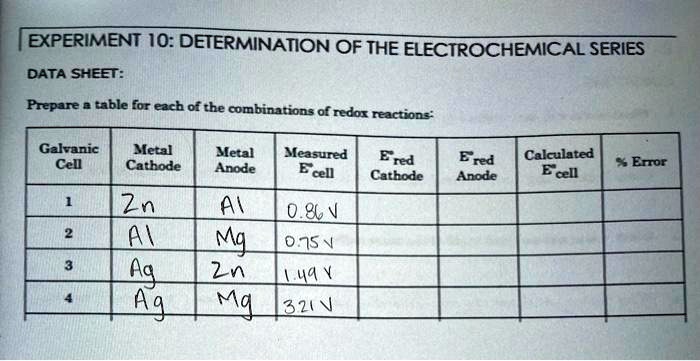 EXPERIMENT 10: DETERMINATION OF THE ELECTROCHEMICAL SERIES
DATA SHEET:
Prepare a table for each of the combinations of redox reactions:
Galvanic Cell Metal Cathode Metal Anode Measured E°cell E°red Cathode E°red Anode Calculated E°cell % Error
1 Zn Al 0.86 V
2 Al Mg 0.75 V
3 Ag Zn 1.49 V
4 Ag Mg 3.21 V